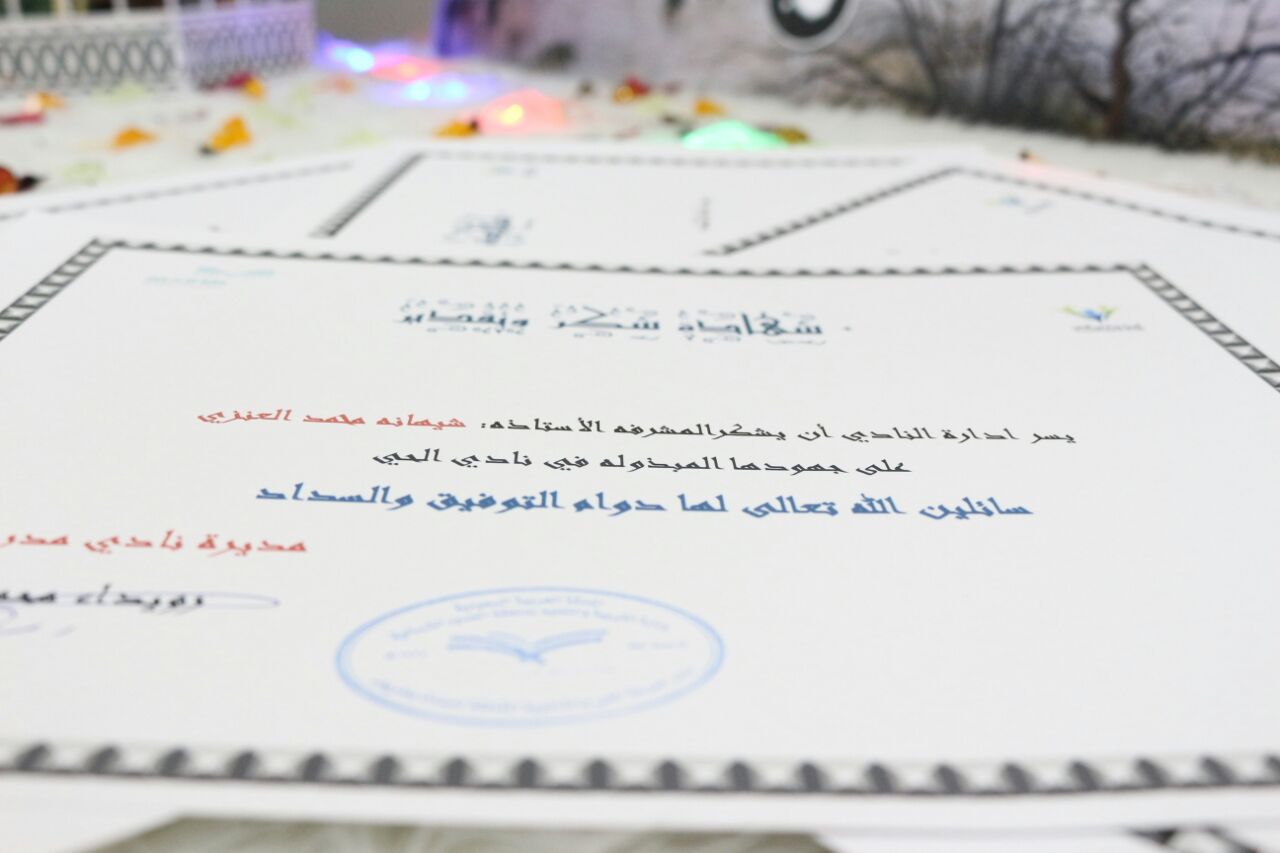 شهادة شكر وتقدير
يسر ادارة النادي أن يشكرالمشرفه الأستاذه: شيهانه محمد العنزي
على جهودها المبذوله في نادي الحي
سائلين الله تعالى لها دوام التوفيق والسداد
مديرة نادي
رويداء